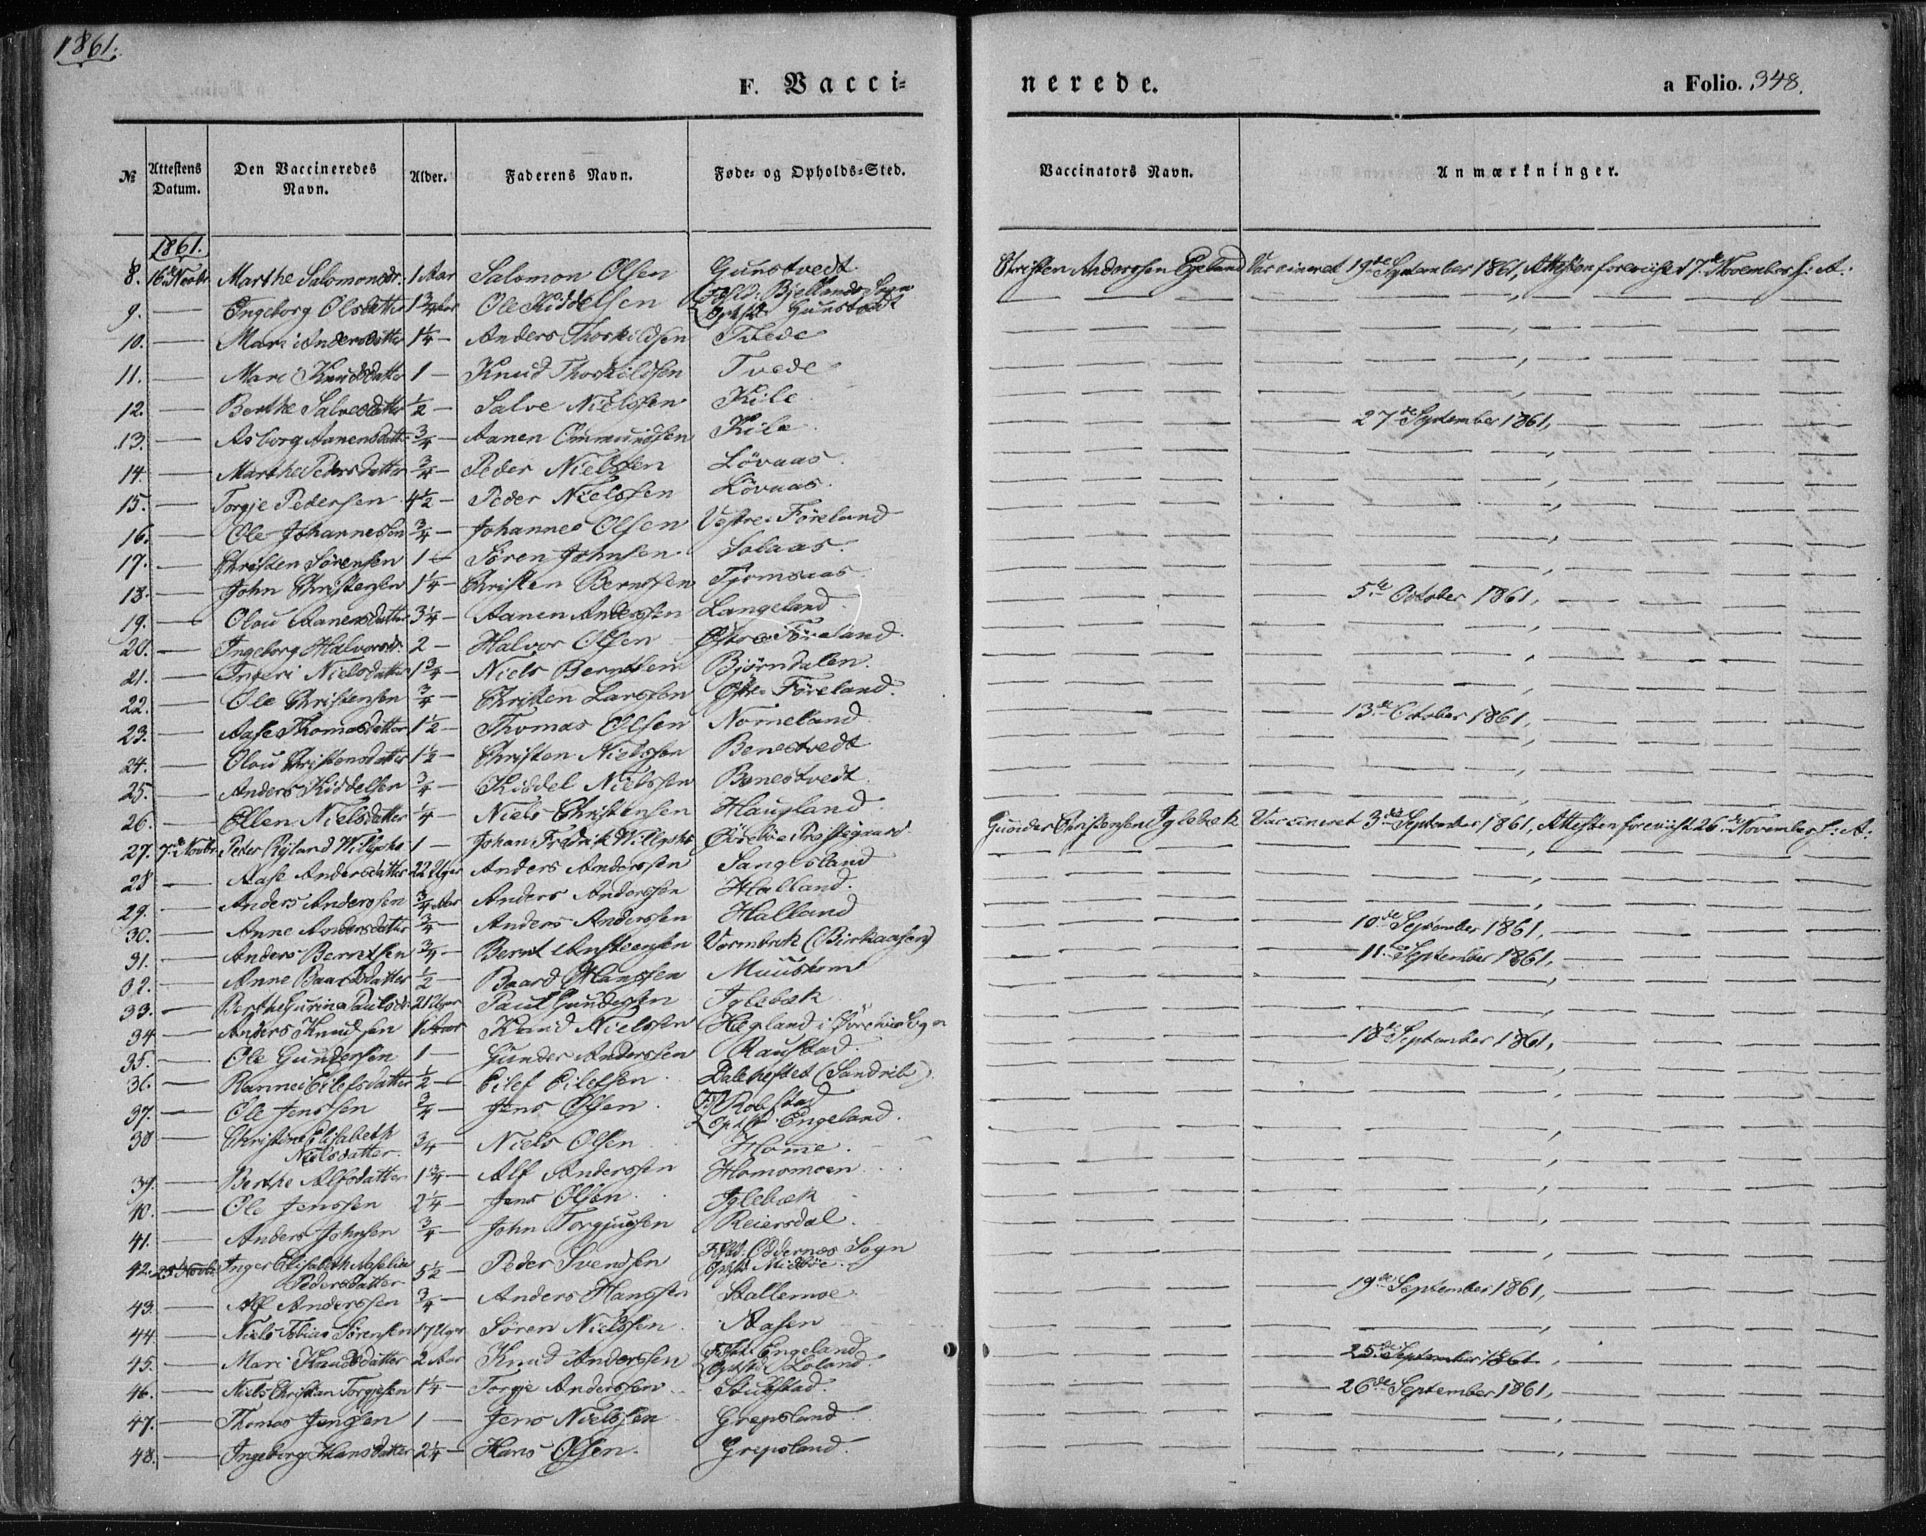 1861.
F. Vacci-
nerede.
a Folio. 348.
№ Attestens Datum. Den Vaccineredes Navn. Alder. Faderens Navn. Føde- og Opholds-Sted. Vaccinators Navn. Anmærkninger.
1861.
8. 16de Novbr Marthe Salomonsdr. 1 Aar Salomon Olsen Gunstvedt Christen Anderssen Egeland Vaccineret 19de September 1861, Attesten foreviist 17de November s: A:
9. — Engeborg Olsdatter 1 3/4 Aar Ole Kiddelsen Fødst: Bjellands Sogn
Opst: Gunstvedt
10. — Mari Andersdatter 1 1/4 — Anders Thorkildsen Tvede
11. — Mari Knudsdatter 1 — Knud Thorkildsen Tvede
12. — Berthe Salvesdatter 1/2 — Salve Nielssen Kile
13. — Asborg Aanensdatter 3/4 — Aanen Ommundsen Kile — 27de September 1861, —
14. — Marthe Pedersdatter 3/4 — Peder Nielssen Lövaas
15. — Torgje Pedersen 4 1/2 — Peder Nielssen Lövaas.
16. — Ole Johannessen 3/4 — Johannes Olsen Vestre Föreland
17. — Christen Sörensen 1 — Sören Johnsen Solaas.
18. — John Christensen 1 1/4 — Christen Berntsen Tjomsaas — 5te October 1861, —
19. — Olou Aanensdatter 3 1/4 — Aanen Anderssen Langeland
20. — Ingeborg Halvorsdr. 2 — Halvor Olsen Östre Föreland.
21. — Inseri Nielsdatter 1 3/4 — Niels Berntsen Bjørndalen.
22. — Ole Christensen 3/4 — Christen Larssen Östre Föreland.
23. — Aase Thomasdatter 1 1/2 — Thomas Olsen Nomeland — 13de October 1861, —
24. — Olou Christensdatter 1 1/2 — Christen Nielssen Benestvedt
25. — Anders Kiddelsen 3/4 — Kiddel Nielssen Benestvedt
26. — Ellen Nielsdatter 1/4 — Niels Christensen Haugland
27. 7de Novbr Peder Ryland 1 — Johan Fredrik Præstegaard Gunder Christensen Iglebæk Vaccineret 3de September 1861, Attesten foreviist 26de November s: A:
28 — Aase Andersdatter 22 Uger Anders Anderssen Sangesland
29. — Anders Anderssen 3/4 Aar Anders Anderssen Halland.
30. — Anne Andersdatter 3/4 — Anders Anderssen Halland
31. — Anders Berntsen 3/4 — Bernt Ansteensen (Birkaasen) — 10de September 1861, —
32. — Anne Baardsdatter 1/2 — Baard Hanssen — 11te September 1861, —
33. — Berthe Gurine Paulsdr 21 Uger Paul Gundersen Iglebæk
34 — Anders Knudsen 1 Aar Knud Nielssen Hegland i Sogn
35. — Ole Gundersen 1 — Gunder Anderssen Raustad. — 18de September 1861, —
36. — Rannei Eilefsdatter 1/2 — Eilef Eilefsen Daleheftet (Sandrib)
37. — Ole Jenssen 3/4 — Jens Olsen. F: Robstad
Opst: Engeland.
38 — Christine Elisabeth
Nielsdatter. 3/4 — Niels Olsen Home.
39. — Berthe Alfsdatter 1 3/4 — Alf Anderssen Homsmoen
40. — Ole Jenssen 2 1/4 — Jens Olsen. Iglebæk
41. — Anders Johnsen 3/4 — John Torgjussen Reiersdal.
42. 25 Novbr Inger Elisabeth Aselia
Pedersdatter 5 1/2 — Peder Svendsen Fødst: Oddernæs Sogn
Opst: Midböe.
43. — Alf Anderssen 3/4 — Anders Hanssen Stallemoe — 19de September 1861, —
44. — Niels Tobias Sörensen 17 Uger Sören Nielssen Aasen
45. — Mari Knudsdatter 2 Aar Knud Anderssen Fødst: Engeland
Opst: Loland. — 25de September 1861. —
46. — Niels Christian Torgjesen 1 1/4 — Torgje Anderssen Stubstad. — 26de September 1861, —
47. — Thomas Jenssen 1 — Jens Nielssen Grepsland.
48. — Ingeborg Hansdatter 2 1/4 — Hans Olsen. Grepsland.